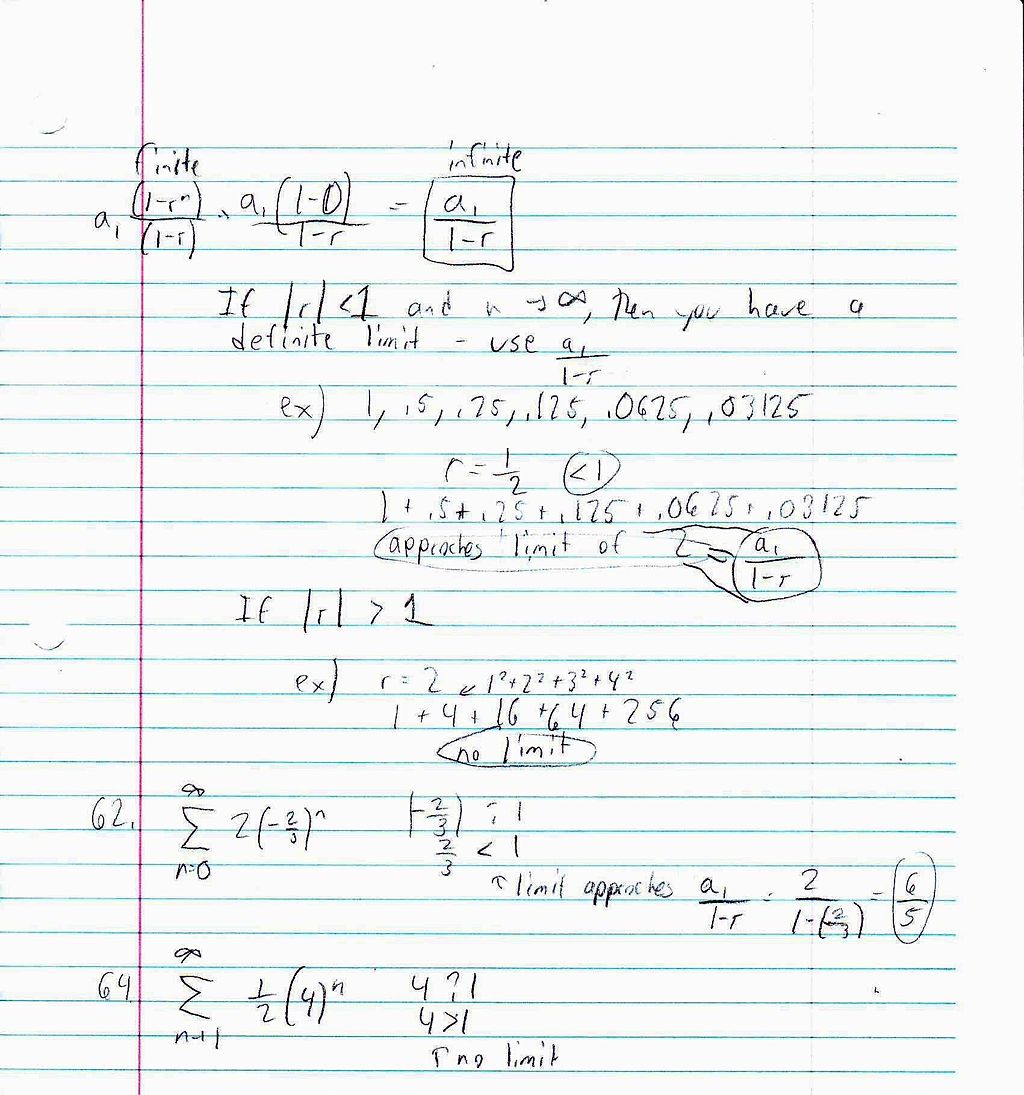 finite infinite
a₁ (1-rⁿ)/(1-r) · a₁(1-0)/1-r = a₁/1-r
If |r| < 1 and n → ∞, then you have a
definite limit - use a₁/1-r
ex) 1, .5, .25, .125, .0625, .03125
r = 1/2 <1
1 + .5 + .25 + .125 + .0625 + .03125
approaches limit of 2 = a₁/1-r
If |r| > 1
ex) r = 2 ↙ 1²+2²+3²+4²
1 + 4 + 16 + 64 + 256
no limit
62. ∞ Σ n=0 2(-2/3)ⁿ |-2/3| ? 1
2/3 < 1
↑ limit approaches a₁/1-r = 2/1-(-2/3) = 6/5
64 ∞ Σ n=1 1/2(4)ⁿ 4 ? 1
4 > 1
↑ no limit